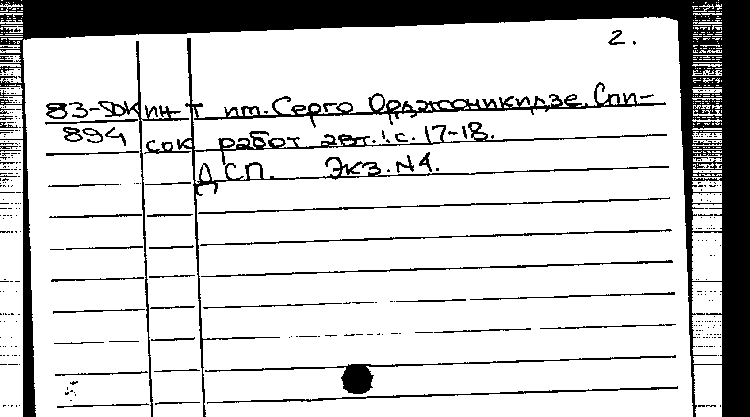 2.
83-5ДК ин-т им. Серго Орджоникидзе. Спи-
894 сок работ авт.: с. 17-18.
ДСП. Экз. N4.